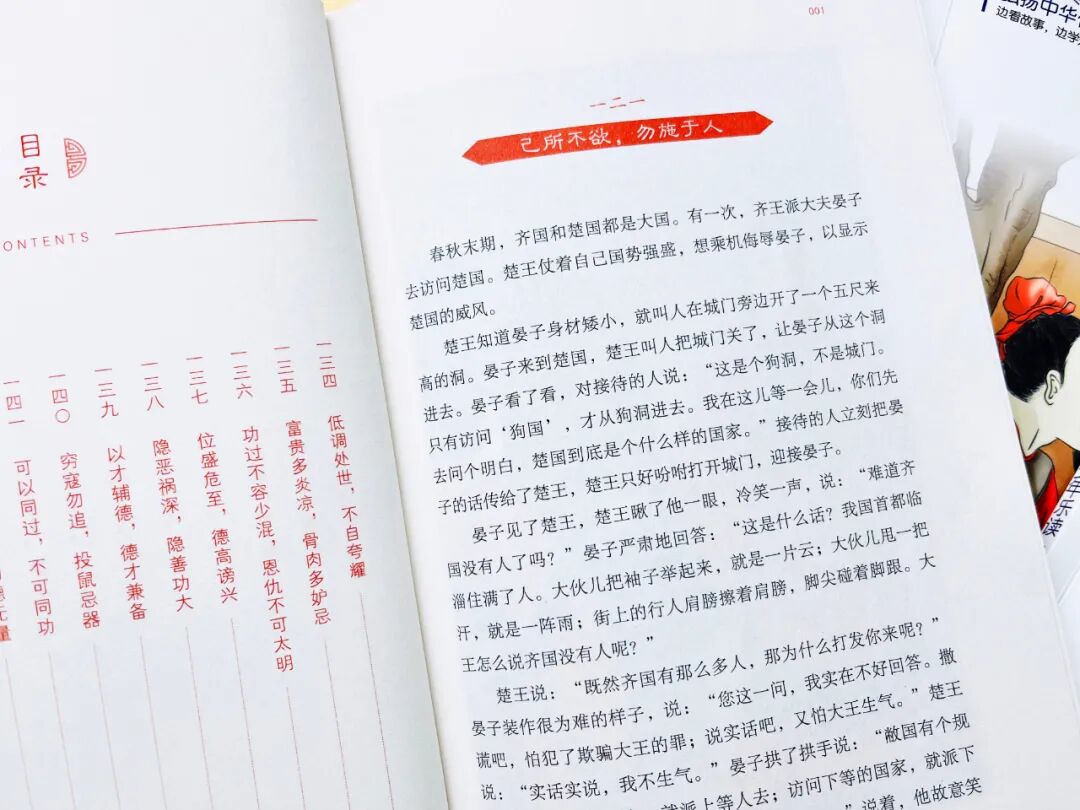 目录
CONTENTS
一三四 低调处世，不自夸耀
一三五 富贵多炎凉，骨肉多妒忌
一三六 功过不容少混，恩仇不可太明
一三七 位盛危至，德高谤兴
一三八 隐恶祸深，隐善功大
一三九 以才辅德，德才兼备
一四〇 穷寇勿追，投鼠忌器
一四一 可以同过，不可同功
001
一二一
己所不欲，勿施于人
春秋末期，齐国和楚国都是大国。有一次，齐王派大夫晏子
去访问楚国。楚王仗着自己国势强盛，想乘机侮辱晏子，以显示
楚国的威风。
楚王知道晏子身材矮小，就叫人在城门旁边开了一个五尺来
高的洞。晏子来到楚国，楚王叫人把城门关了，让晏子从这个洞
进去。晏子看了看，对接待的人说：“这是个狗洞，不是城门。
只有访问‘狗国’，才从狗洞进去。我在这儿等一会儿，你们先
去问个明白，楚国到底是个什么样的国家。”接待的人立刻把晏
子的话传给了楚王，楚王只好吩咐打开城门，迎接晏子。
晏子见了楚王，楚王瞅了他一眼，冷笑一声，说：“难道齐
国没有人了吗？”晏子严肃地回答：“这是什么话？我国首都临
淄住满了人。大伙儿把袖子举起来，就是一片云；大伙儿甩一把
汗，就是一阵雨；街上的行人肩膀擦着肩膀，脚尖碰着脚跟。大
王怎么说齐国没有人呢？”
楚王说：“既然齐国有那么多人，那为什么打发你来呢？”
晏子装作很为难的样子，说：“您这一问，我实在不好回答。撒
谎吧，怕犯了欺骗大王的罪；说实话吧，又怕大王生气。”楚王
说：“实话实说，我不生气。”晏子拱了拱手说：“敝国有个规
就派上等人去；访问下等的国家，就派下
”说着，他故意笑
扬中华
边看故事，边学
乐读